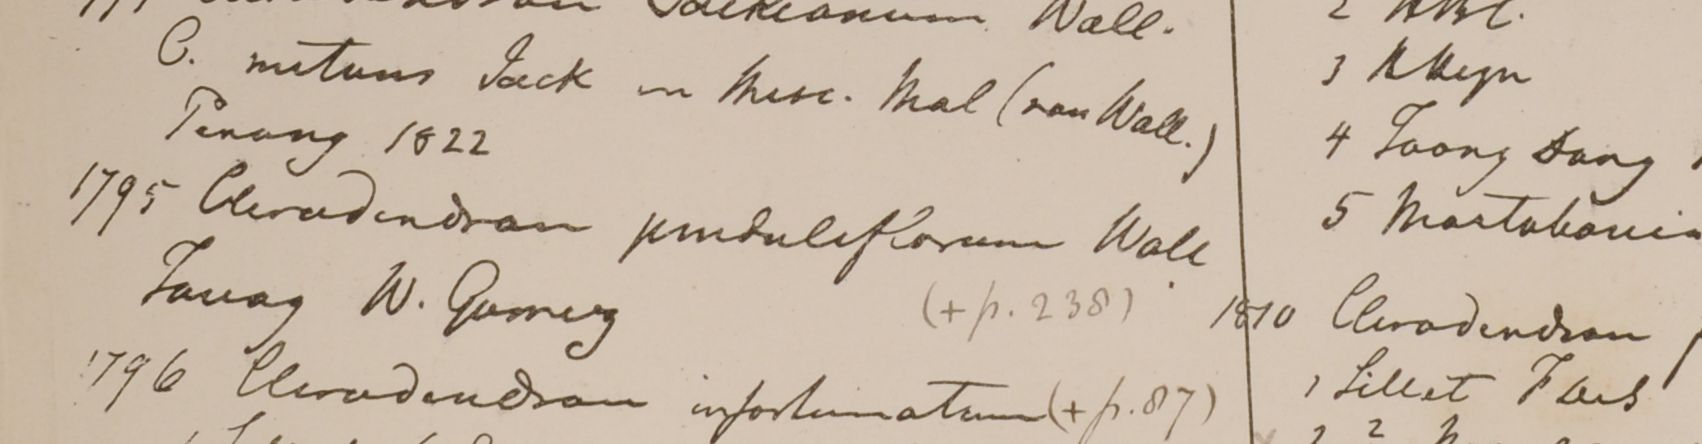 Jackianum Wall.
C. nutans Jack in Misc. Mal (non Wall.)
Penang 1822
1795 Clerodendron penduliflorum Wall
Tavoy W. Gomez
(+ p. 238)
1796 Clerodendron infortunatum (+ p. 87)
2 HBC.
3
4 Toong Dong
5
1810 Clerodendron
1 Sillet
2